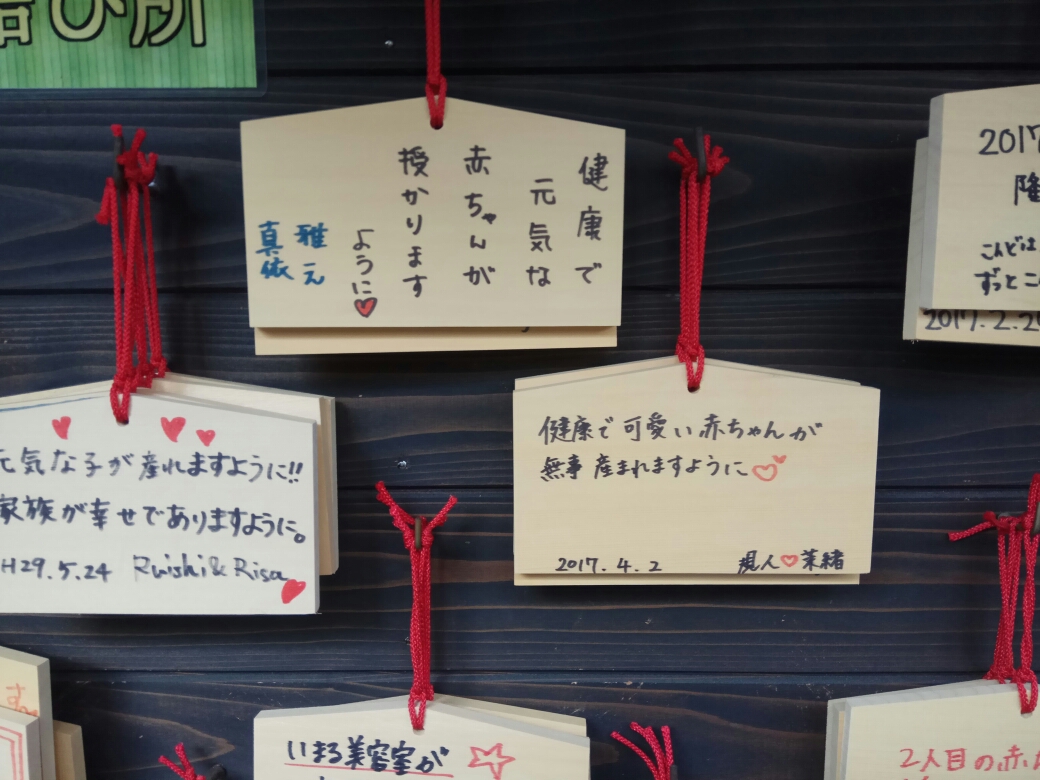 び所
健康で
元気な
赤ちゃんが
授かります
ように
雅元
真依
2017
隆
こんどは
ずっとこ
2017.2.20
元気な子が産れますように!!
家族が幸せでありますように。
H29.5.24 Ruishi&Risa
健康で可愛い赤ちゃんが
無事産まれますように
2017.4.2 規人 茉緒
いまる美容室が
2人目の赤